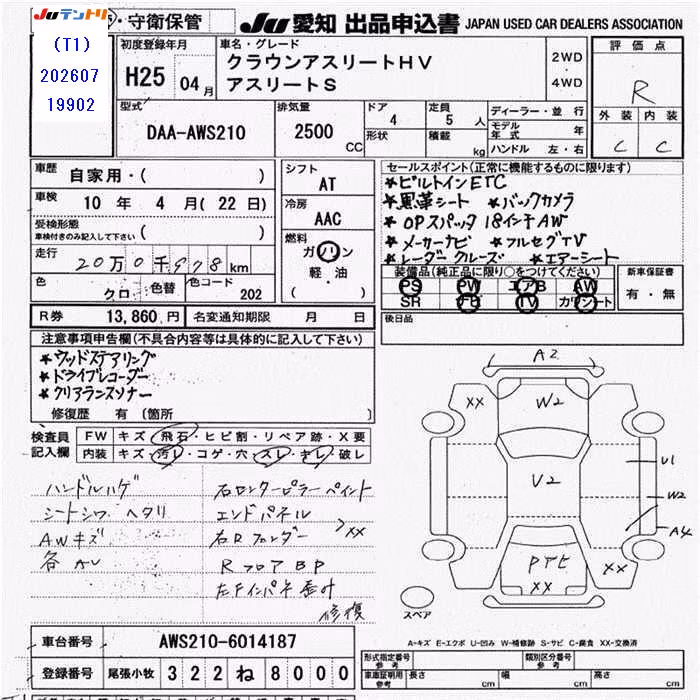 Juテントリ
(T1)
202607
19902
・守衛保管
Ju 愛知 出品申込書 JAPAN USED CAR DEALERS ASSOCIATION
初度登録年月
H25 04月
車名・グレード
クラウンアスリートHV
アスリートS
2WD
・
4WD
評価点
R
外装 内装
C C
型式
DAA-AWS210
排気量
2500 CC
ドア
4
定員
5 人
形状
積載
kg
ディーラー・並行
モデル年式 年
ハンドル 左・右
車歴
自家用・( )
車検
10 年 4 月 ( 22 日)
受検形態
車検付きのみ記入して下さい ( )
走行
20万0千978 km
色
クロ
色替
色コード
202
シフト
AT
冷房
AAC
燃料
ガソリン
軽・油
( )
セールスポイント(正常に機能するものに限り)
★ビルトインETC
★黒革シート ★バックカメラ
★OPスパッタ 18インチAW
★メーカーナビ ★フルセグTV
★レーダークルーズ ★エアーシート
装備品(純正品に限り○をつけてください)
PS PW エアB AW
SR TV カワシート
新車保証書
有・無
R券 13,860 円 名変通知期限 月 日
後日品
注意事項申告欄(不具合内容等は具体的に記入して下さい)
★ウッドステアリング
★ドライブレコーダー
★クリアランスソナー
修復歴 有 〔箇所 〕
検査員
記入欄
FW キズ・飛石・ヒビ割・リペア跡・X要
内装 キズ・汚レ・コゲ・穴・スレ・キレ・破レ
ハンドルハゲ
シートシワ ヘタリ
AWキズ
各AU
右ロッカーピラー ペイント
エンドパネル
右Rフェンダー
XX
RフロアBP
修復
A2
XX
W2
V2
U1
W2
A4
XX
XX
スペア
A-キズ E-エクボ U-凹み W-補修跡 S-サビ C-腐食 XX-交換済
車台番号 AWS210-6014187
登録番号 尾張小牧 322 ね 8000
形式指定番号
参考
類別区分番号
参考
車庫証明用
参考
長さ cm 幅 cm 高さ cm